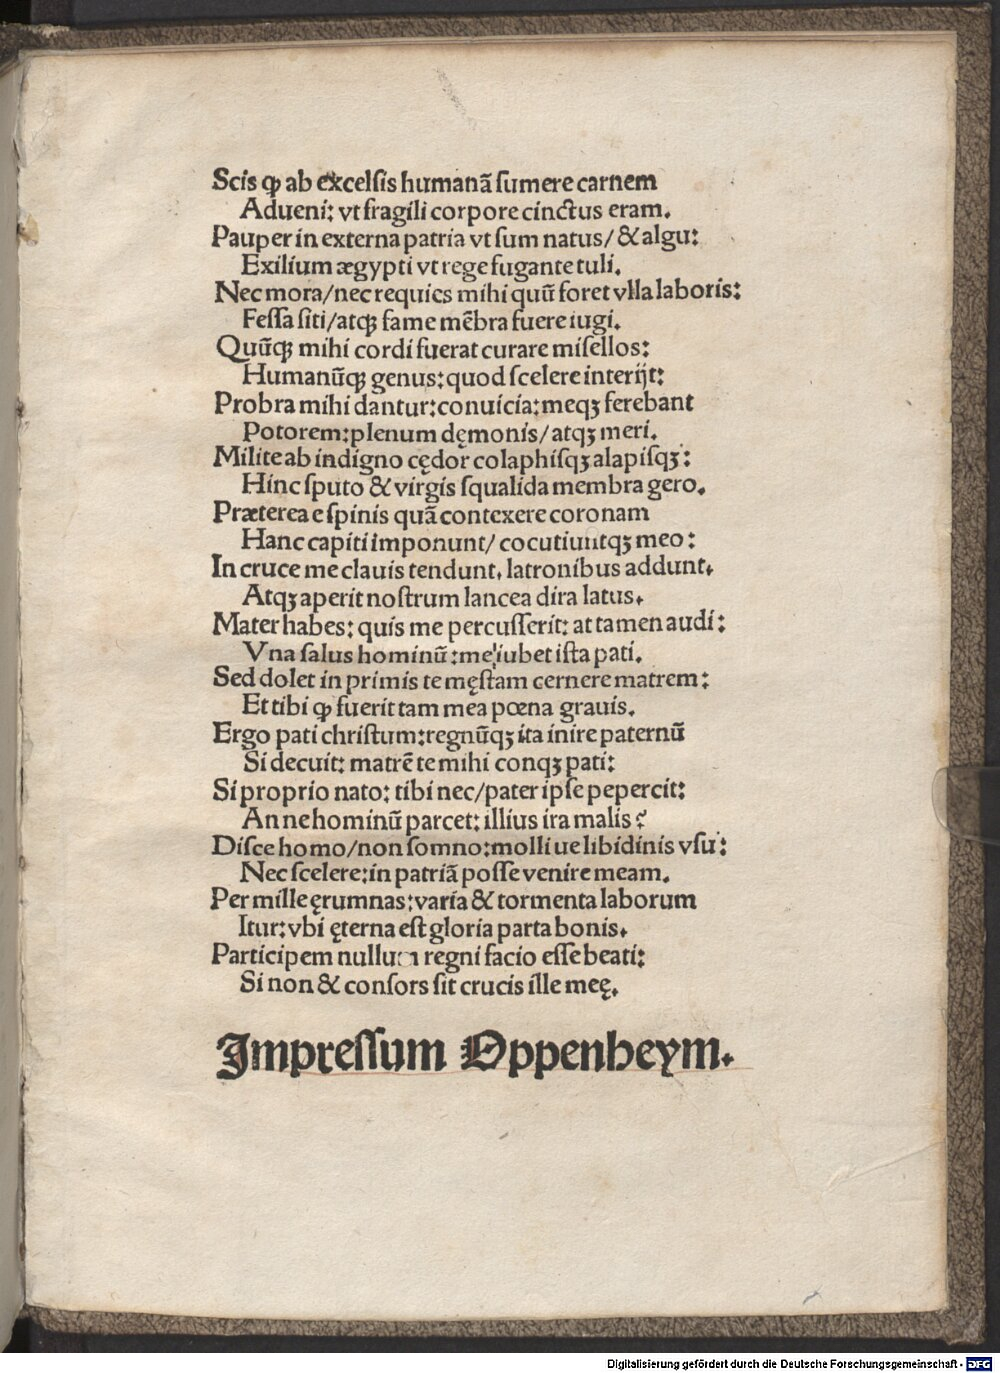 Scis ꝙ ab excelsis humanã ſumere carnem
Adueni: vt fragili corpore cinctus eram.
Pauper in externa patria vt ſum natus/ & algu:
Exilium ægypti vt rege fugante tuli.
Nec mora/nec requies mihi quũ foret vlla laboris:
Feſſa ſiti/atqꝫ fame mẽbra fuere iugi.
Quũqꝫ mihi cordi fuerat curare miſellos:
Humanũqꝫ genus: quod ſcelere interijt:
Probra mihi dantur: conuicia: meqꝫ ferebant
Potorem: plenum dęmonis/ atqꝫ meri.
Milite ab indigno cędor colaphiſqꝫ alapiſqꝫ:
Hinc ſputo & virgis ſqualida membra gero.
Præterea e ſpinis quã contexere coronam
Hanc capiti imponunt/ cocutiuntqꝫ meo:
In cruce me clauis tendunt. latronibus addunt.
Atqꝫ aperit noſtrum lancea dira latus.
Mater habes: quis me percuſſerit: at tamen audi:
Vna ſalus hominũ: me iubet iſta pati.
Sed dolet in primis te męſtam cernere matrem:
Et tibi ꝙ fuerit tam mea pœna grauis.
Ergo pati chriſtum: regnũqꝫ ita inire paternũ
Si decuit: matrẽ te mihi conqꝫ pati:
Si proprio nato: tibi nec/pater ipſe pepercit:
An ne hominũ parcet: illius ira malis?
Diſce homo/non ſomno: molli ue libidinis vſu:
Nec ſcelere: in patriã poſſe venire meam.
Per mille ęrumnas: varia & tormenta laborum
Itur: vbi ęterna eſt gloria parta bonis.
Participem nullum regni facio eſſe beati:
Si non & conſors ſit crucis ille meę.
Impreſſum Oppenheym.
Digitalisierung gefördert durch die Deutsche Forschungsgemeinschaft - DFG